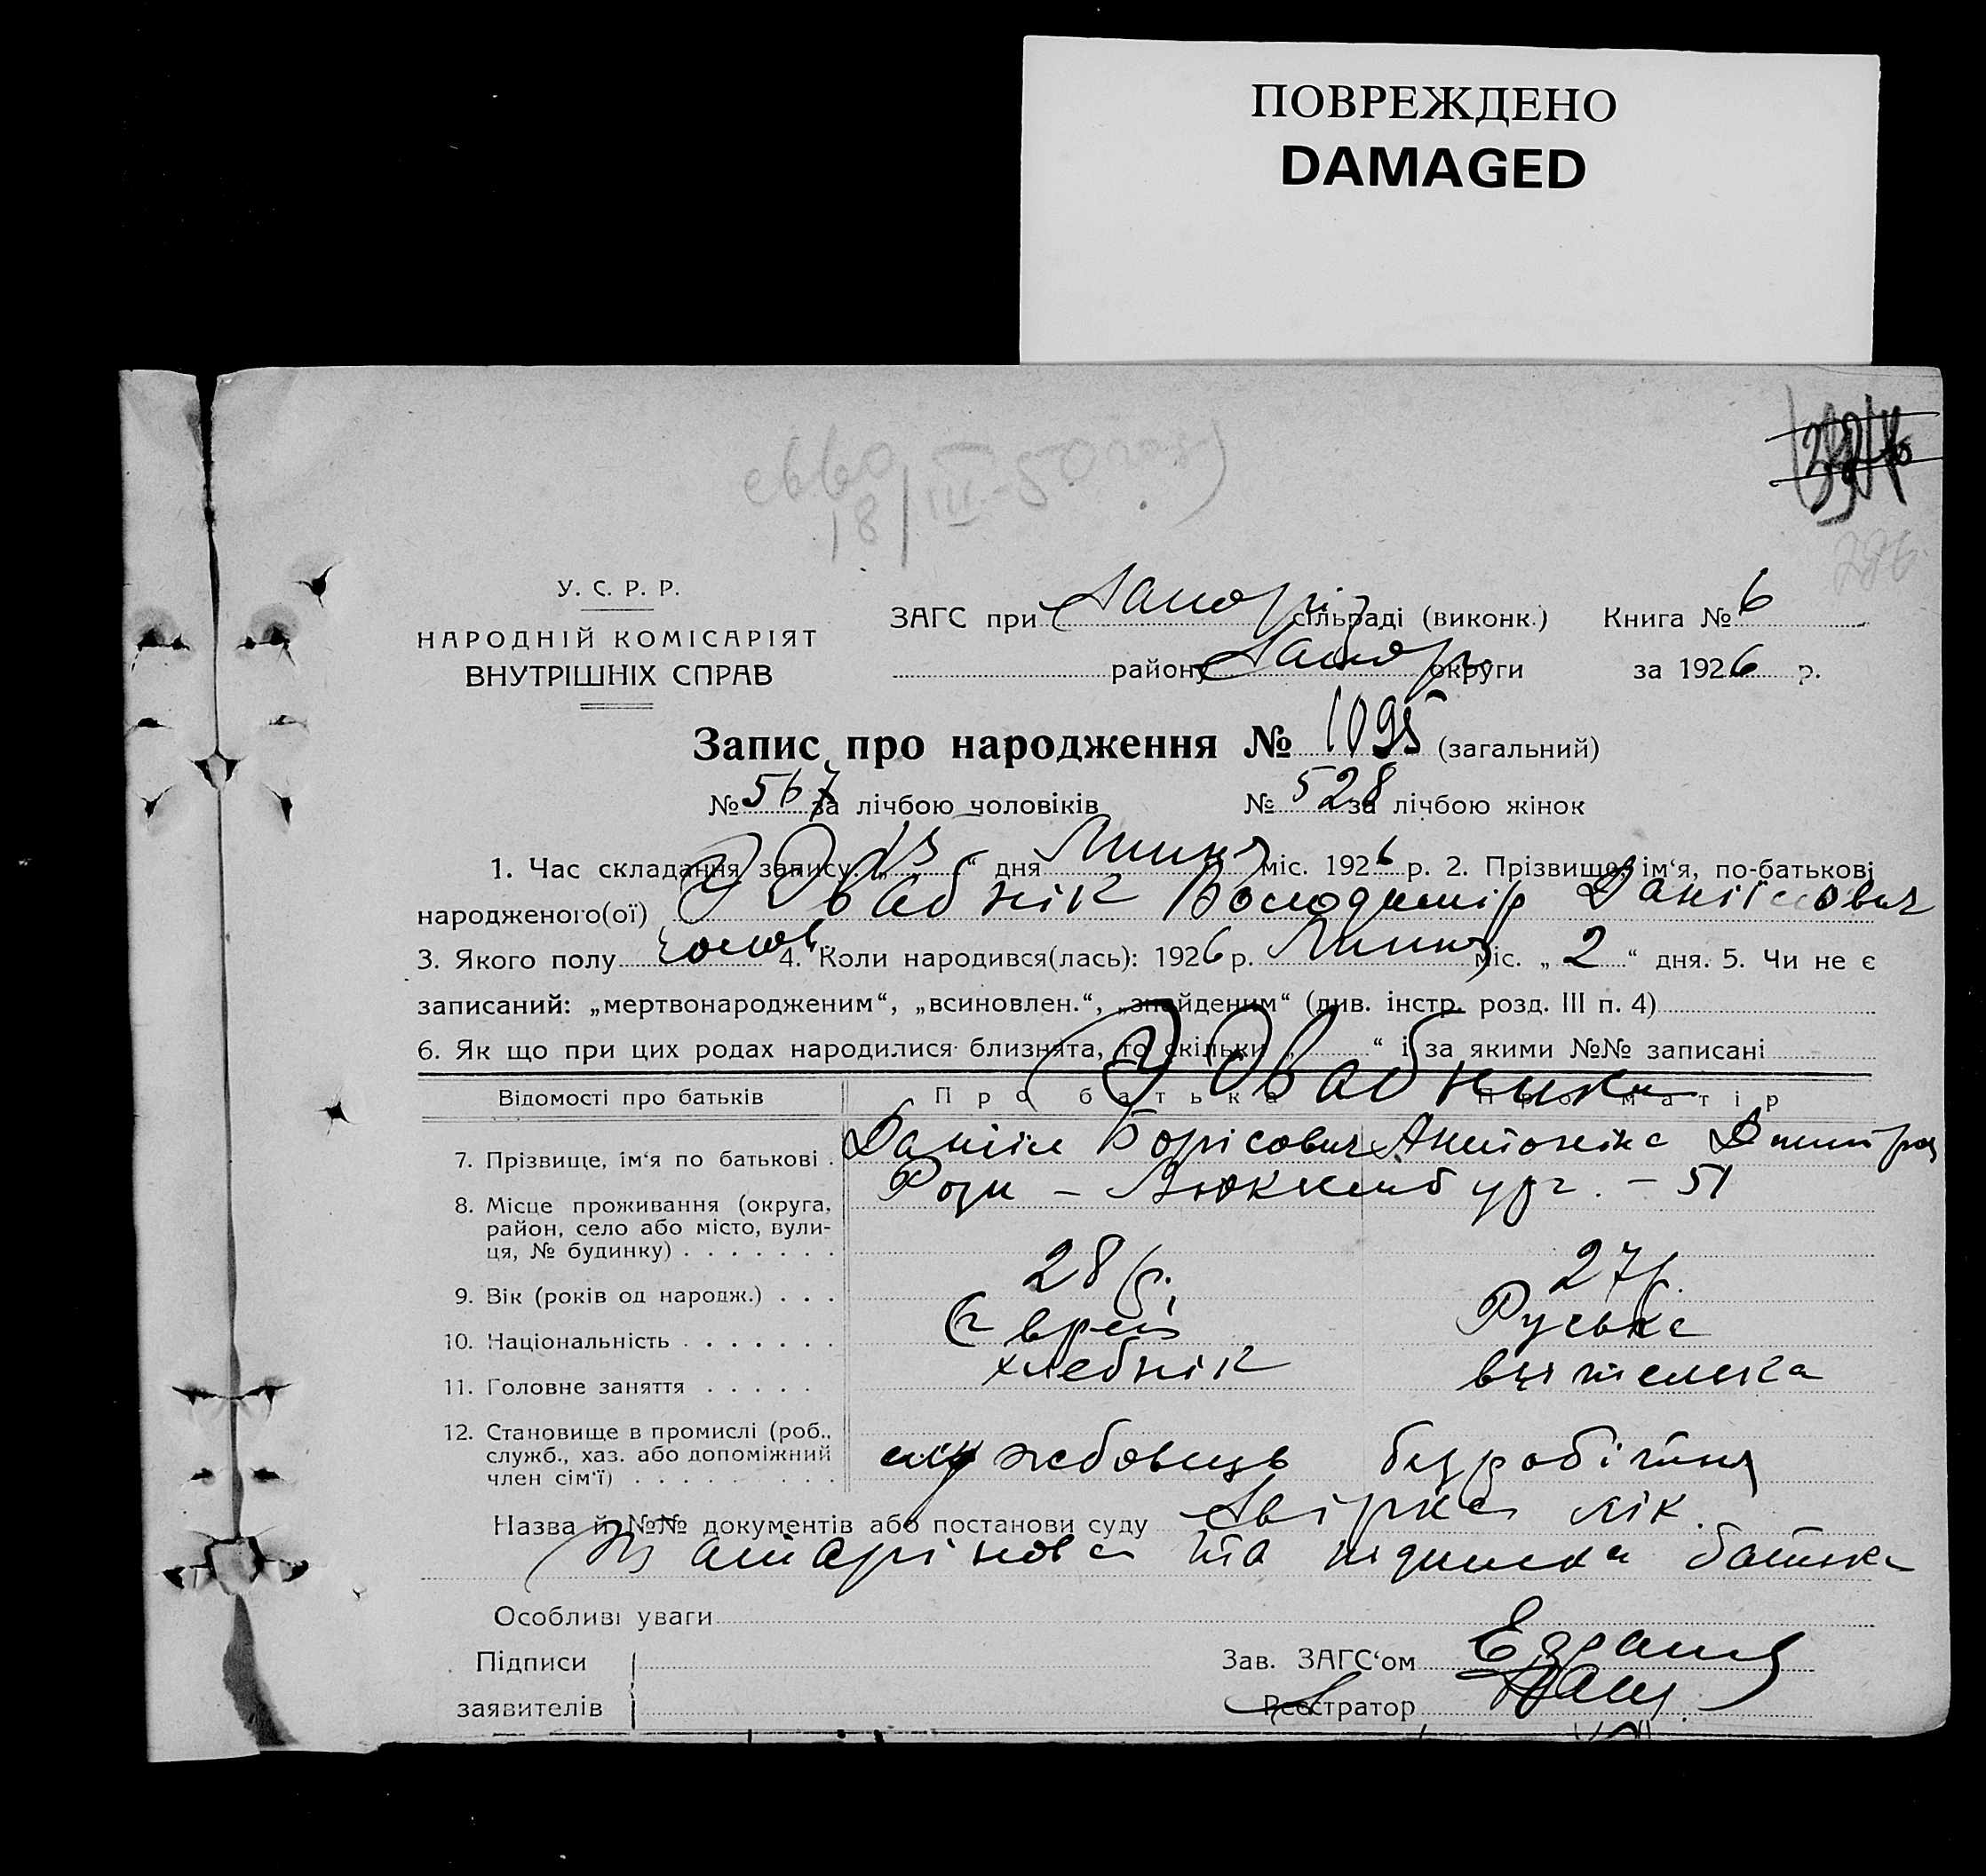 ПОВРЕЖДЕНО
DAMAGED
18/III-50
У. С. Р. Р.
НАРОДНІЙ КОМІСАРІЯТ
ВНУТРІШНІХ СПРАВ
ЗАГС при Запоріз сільраді (виконк.) Книга № 6
району Запор округи за 1926 р.
Запис про народження № 1095 (загальний)
№ 567 за лічбою чоловіків № 528 за лічбою жінок
1. Час складання запису. „13“ дня Липня міс. 1926 р. 2. Прізвище, ім‘я, по-батькові
народженого(ої) Вабнік Володимір Даніїлович
3. Якого полу чолов. 4. Коли народився(лась): 1926 р. Липня міс. „2“ дня. 5. Чи не є
записаний: „мертвонародженим“, „всиновлен.“, „знайденим“ (див. інстр. розд. III п. 4)
6. Як що при цих родах народилися близнята, то скільки „ “ і за якими №№ записані
Відомості про батьків Про батька Про матір
7. Прізвище, ім‘я по батькові . Даніїл Борісович Антоніна Дмитр
8. Місце проживання (округа, район, село або місто, вулиця, № будинку) . . . . . . . Рози - Люксембург. - 51
9. Вік (років од народж.) . . . 28 р. 27 р.
10. Національність . . . . . . . Єврей Руська
11. Головне заняття . . . . . хлебнік вчителька
12. Становище в промислі (роб., служб., хаз. або допоміжний член сім‘ї) . . . . . . . . . службовець безробітня
Назва й №№ документів або постанови суду Звірка лік.
та підписка батька
Особливі уваги
Підписи
заявителів
Зав. ЗАГС‘ом
Реєстратор